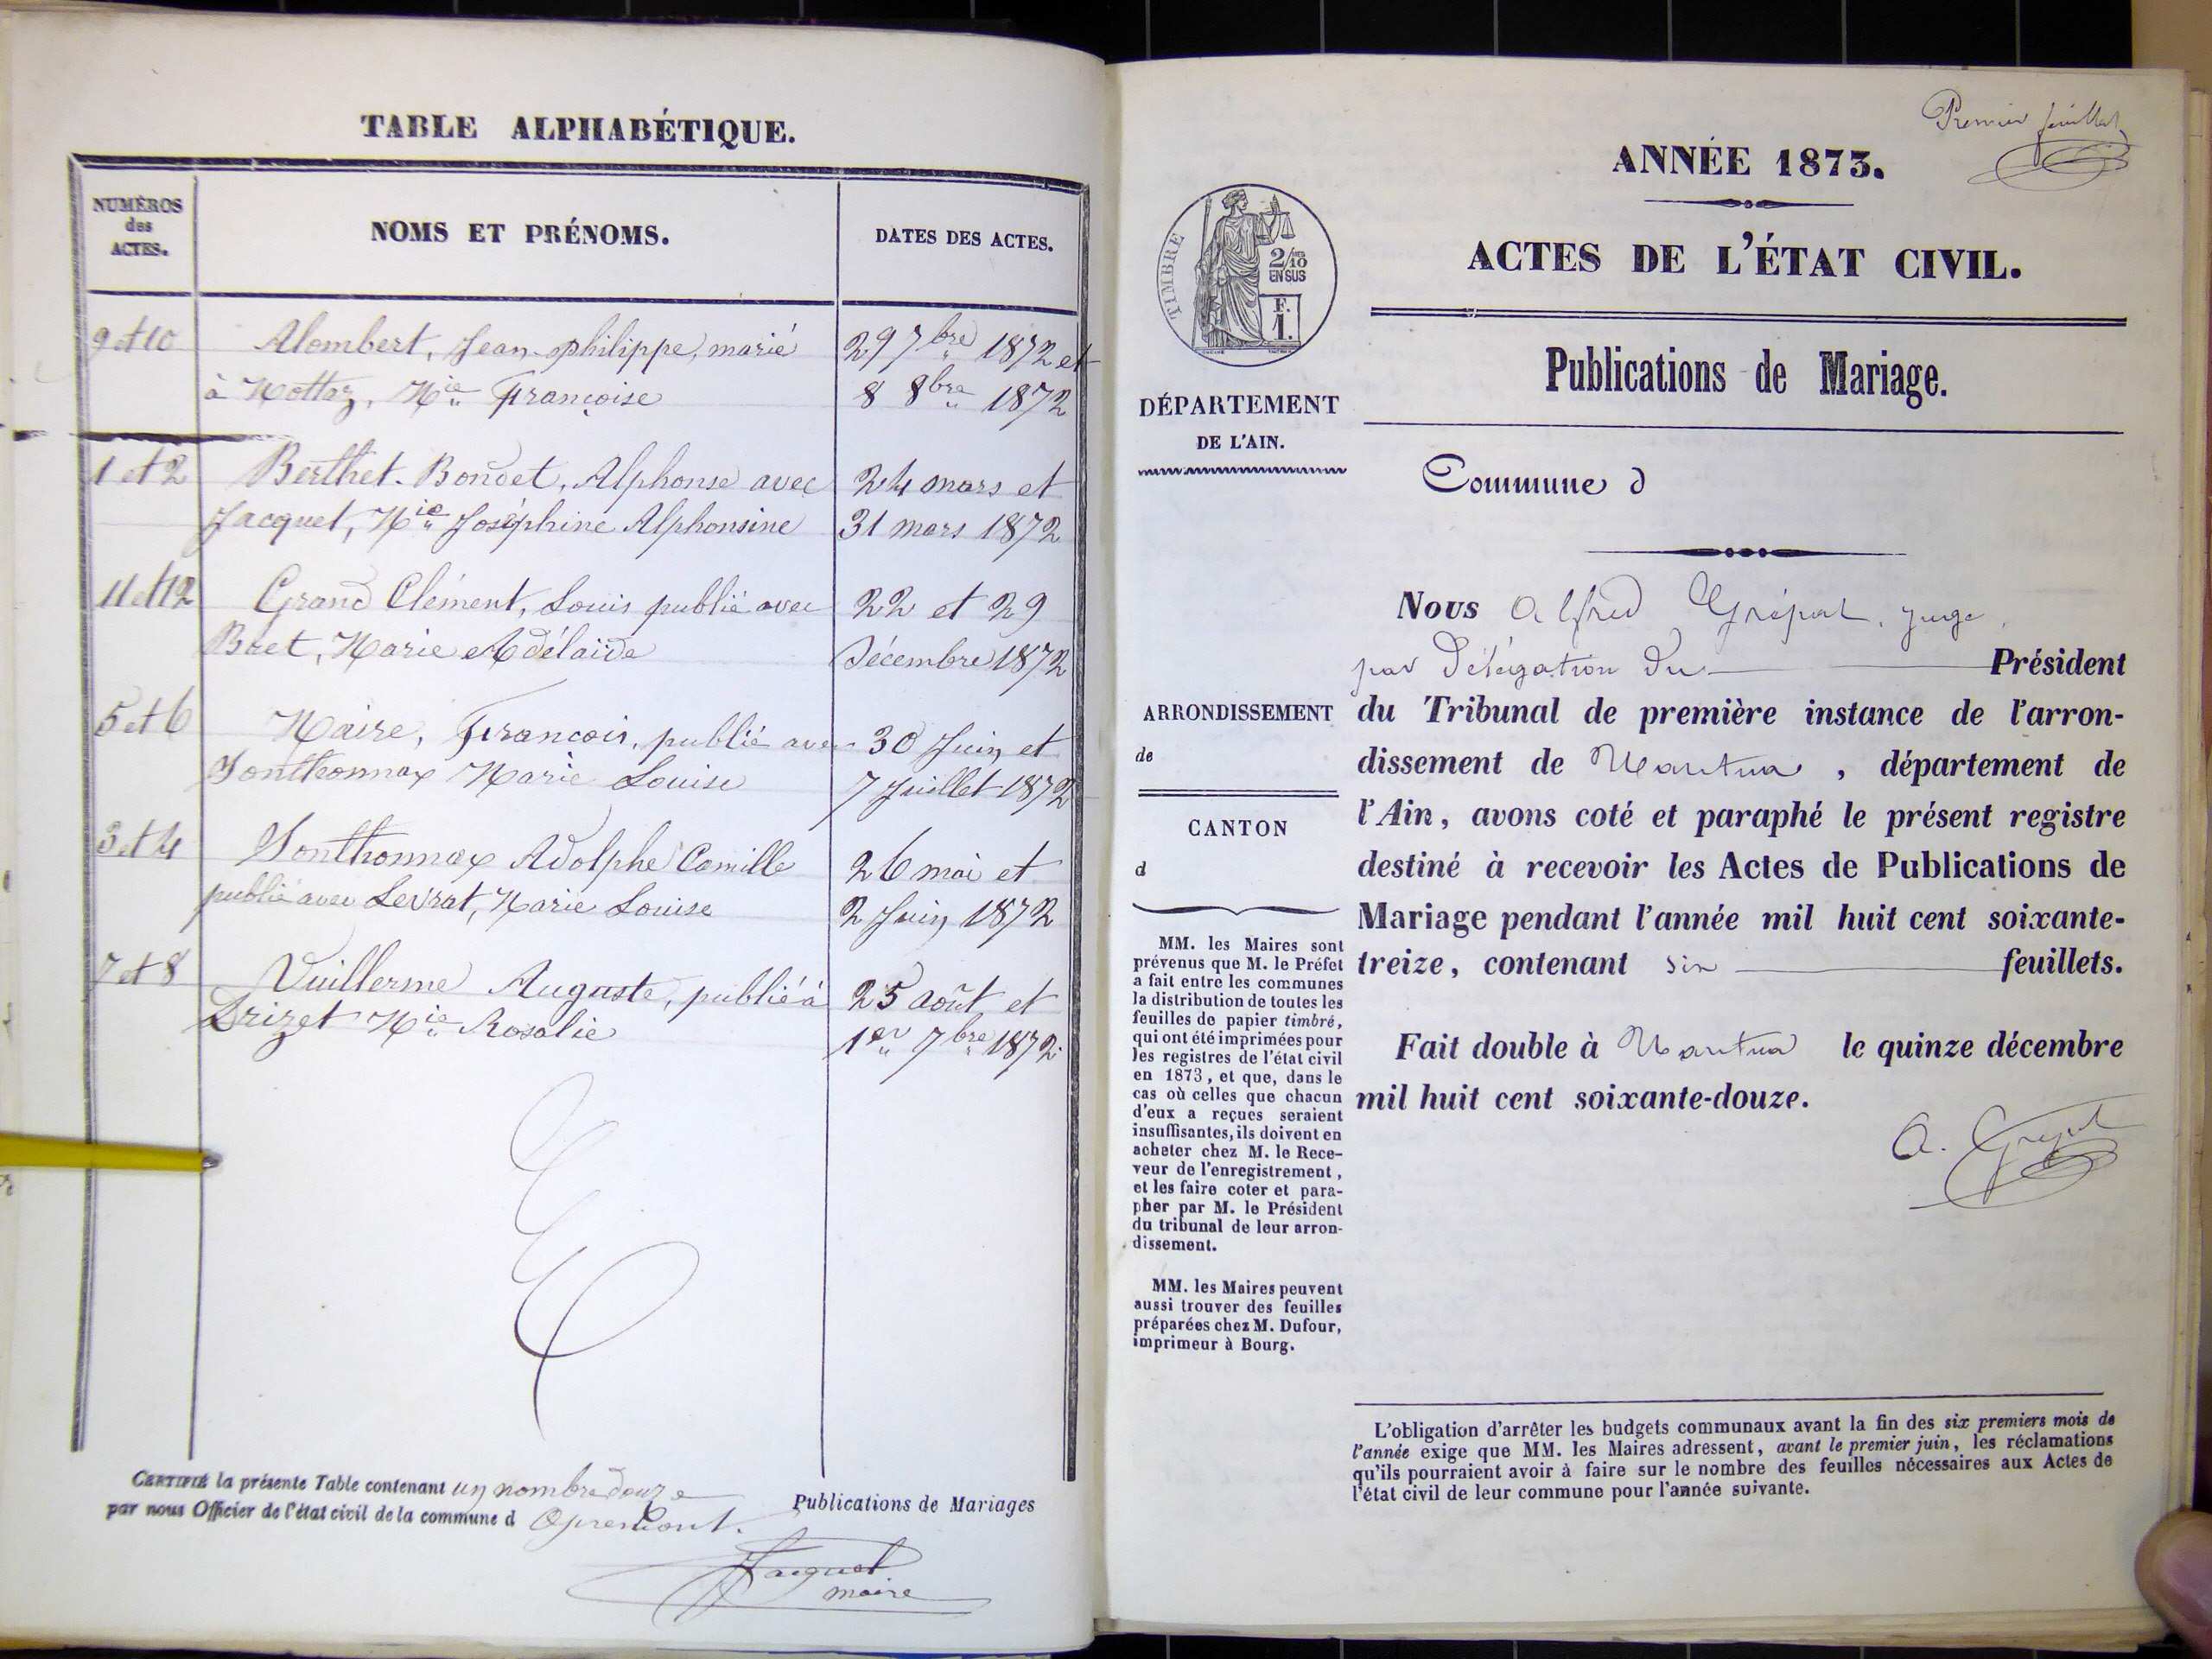 TABLE ALPHABÉTIQUE.
NUMÉROS
des
ACTES.
NOMS ET PRÉNOMS.
DATES DES ACTES.
9 et 10
Alombert, Jean-philippe, marié
29 7bre 1872 et
à Mottaz, Mie Françoise
8 8bre 1872
1 et 2
Berthet-Bondet, Alphonse avec
24 mars et
Jacquet, Mie Joséphine Alphonsine
31 mars 1872
11 et 12
Grand Clément, Louis publié avec
22 et 29
Bret, Marie Adélaïde
Décembre 1872
5 et 6
Maire, François, publié avec
30 Juin et
Sonthonnax Marie Louise
7 Juillet 1872
3 et 4
Sonthonnax Adolphe Camille
26 mai et
publié avec Levrat, Marie Louise
2 Juin 1872
7 et 8
Vuillerme Auguste, publié à
25 août et
Drizet Mie Rosalie
1er 7bre 1872.
CERTIFIÉ la présente Table contenant un nombre douze
par nous Officier de l'état civil de la commune d Apremont.
Publications de Mariages
Jacquet
maire
Premier feuillet
ANNÉE 1873.
ACTES DE L'ÉTAT CIVIL.
TIMBRE
2/10
EN SUS
F.
1.
Publications de Mariage.
DÉPARTEMENT
DE L'AIN.
Commune d
Nous Alfred Grépat, juge,
par Délégation du Président
ARRONDISSEMENT
de
du Tribunal de première instance de l'arron-
dissement de Nantua, département de
l'Ain, avons coté et paraphé le présent registre
destiné à recevoir les Actes de Publications de
Mariage pendant l'année mil huit cent soixante-
treize, contenant six feuillets.
Fait double à Nantua le quinze décembre
mil huit cent soixante-douze.
A. Grépat
CANTON
d
MM. les Maires sont
prévenus que M. le Préfet
a fait entre les communes
la distribution de toutes les
feuilles de papier timbré,
qui ont été imprimées pour
les registres de l'état civil
en 1873, et que, dans le
cas où celles que chacun
d'eux a reçues seraient
insuffisantes, ils doivent en
acheter chez M. le Rece-
veur de l'enregistrement,
et les faire coter et para-
pher par M. le Président
du tribunal de leur arron-
dissement.
MM. les Maires peuvent
aussi trouver des feuilles
préparées chez M. Dufour,
imprimeur à Bourg.
L'obligation d'arrêter les budgets communaux avant la fin des six premiers mois de
l'année exige que MM. les Maires adressent, avant le premier juin, les réclamations
qu'ils pourraient avoir à faire sur le nombre des feuilles nécessaires aux Actes de
l'état civil de leur commune pour l'année suivante.